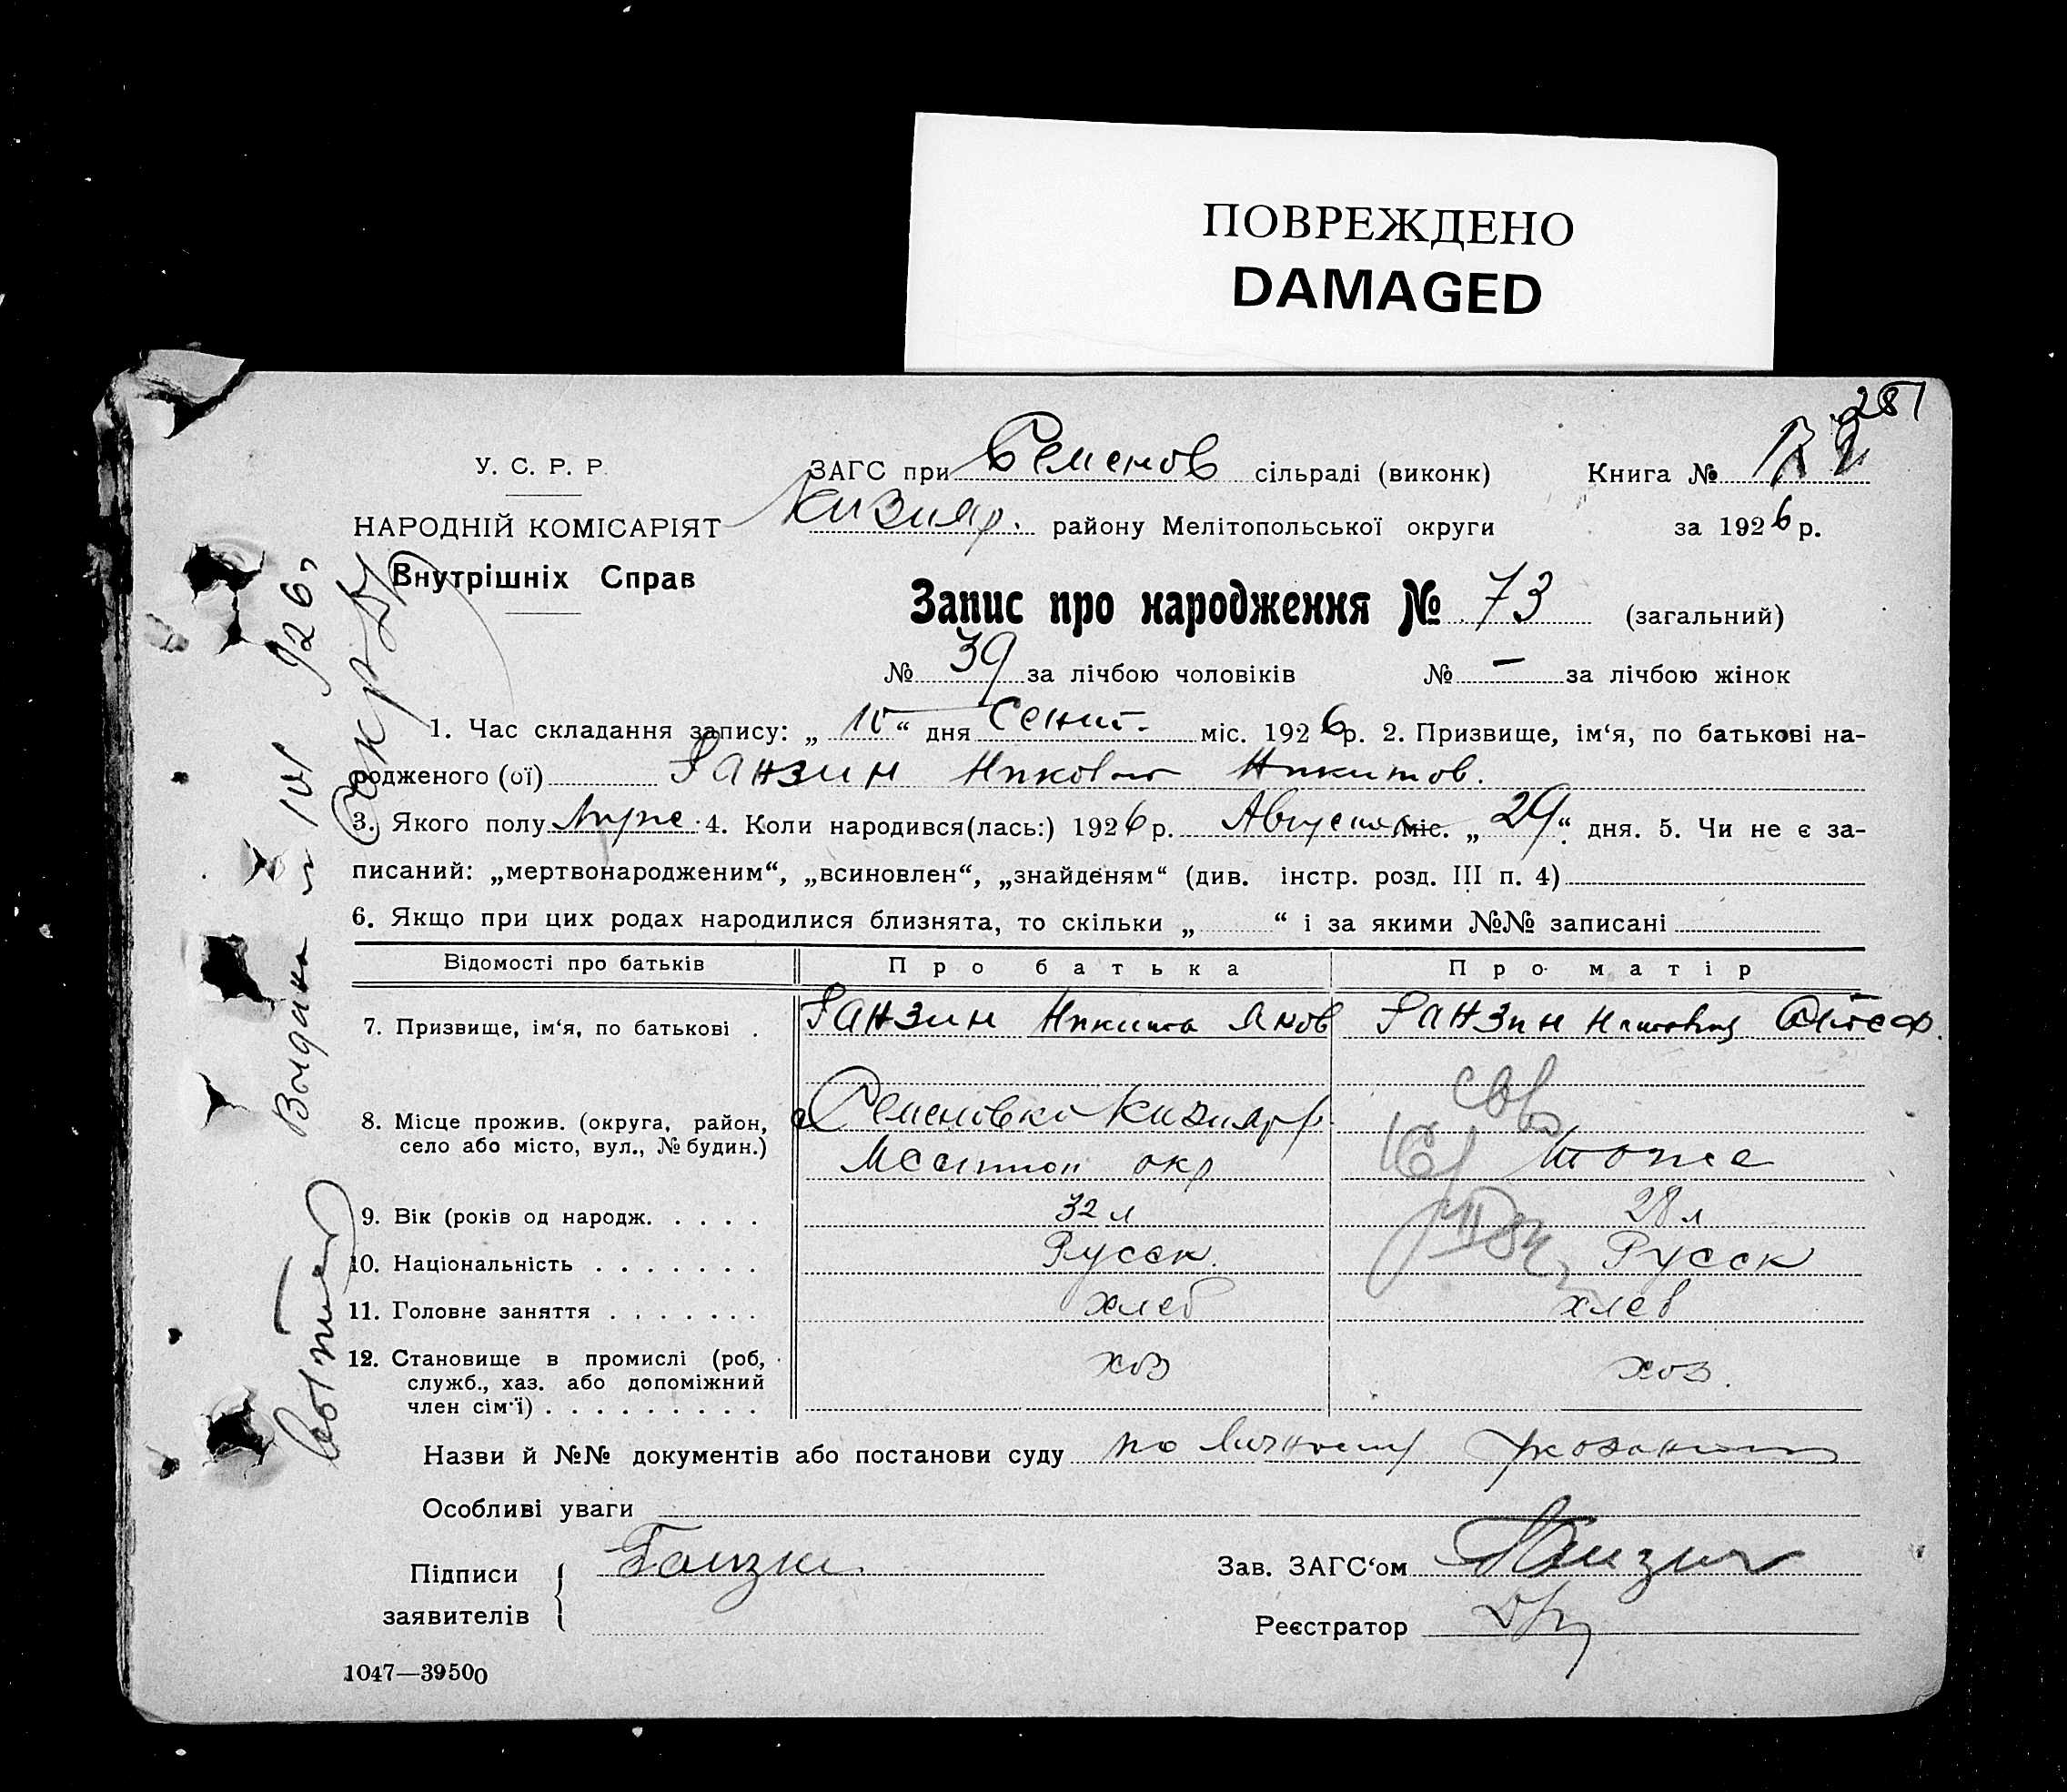 ПОВРЕЖДЕНО
DAMAGED
281
У. С. Р. Р.
НАРОДНІЙ КОМІСАРІЯТ
Внутрішніх Справ
ЗАГС при Семенов сільраді (виконк) Книга №
Кизияр. району Мелітопольської округи за 1926 р.
Запис про народження № 73 (загальний)
№ 39 за лічбою чоловіків № — за лічбою жінок
1. Час складання запису: „ 10 “ дня Сент. міс. 1926 р. 2. Призвище, ім‘я, по батькові на-
родженого (ої) Ганзин Николай Никитов.
3. Якого полу Муже. 4. Коли народився(лась:) 1926 р. Августа міс. „ 29 “ дня. 5. Чи не є за-
писаний: „мертвонародженим“, „всиновлен“, „знайденям“ (див. інстр. розд. III п. 4)
6. Якщо при цих родах народилися близнята, то скільки „ “ і за якими №№ записані
Відомості про батьків Про батька Про матір
7. Призвище, ім‘я, по батькові . Ганзин Никита Яков Ганзин
8. Місце прожив. (округа, район, село або місто, вул., № будин.) Семеновка Кизияр р.
Мелитоп окр тоже
9. Вік (років од народж. . . . . 32 л 28 л
10. Національність . . . . . . . Русск. Русск
11. Головне заняття . . . . . . . хлеб хлеб
12. Становище в промислі (роб, служб., хаз. або допоміжний член сім‘ї) . . . . . . . . . хоз хоз.
Назви й №№ документів або постанови суду по личному
Особливі уваги
Підписи заявителів Ганзин
Зав. ЗАГС‘ом Ганзин
Реєстратор
1047—39500
Выдана 10/ 926